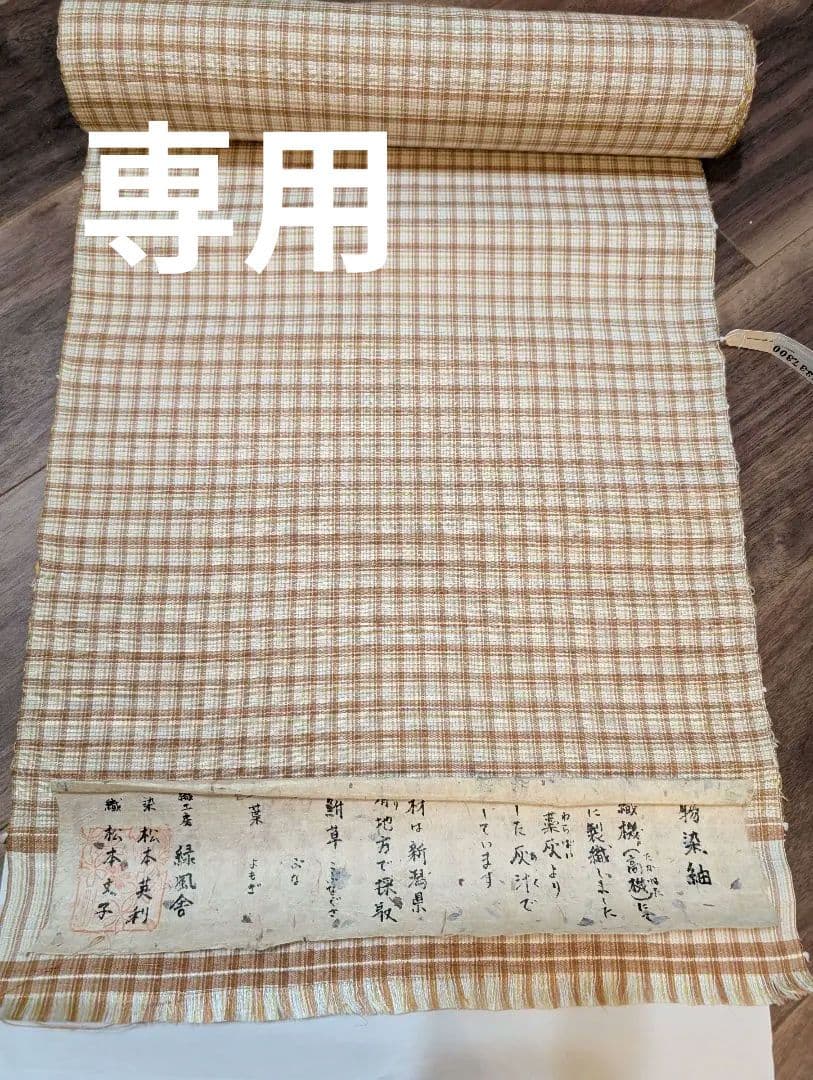 専用
物染紬
織機(高機)にて
たかはた
に製織しました
藁灰より
わらばい
した灰汁で
あく
しています
材は新潟県
地方で採取
鮒草 こぶなぐさ
ぶな
葉 よもぎ
織工房 緑風舎
染 松本英利
織 松本文子